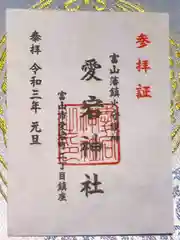 参拝証
富山藩鎮火守護神
愛宕神社
富山市愛宕町一丁目鎮座
奉拝 令和三年 元旦